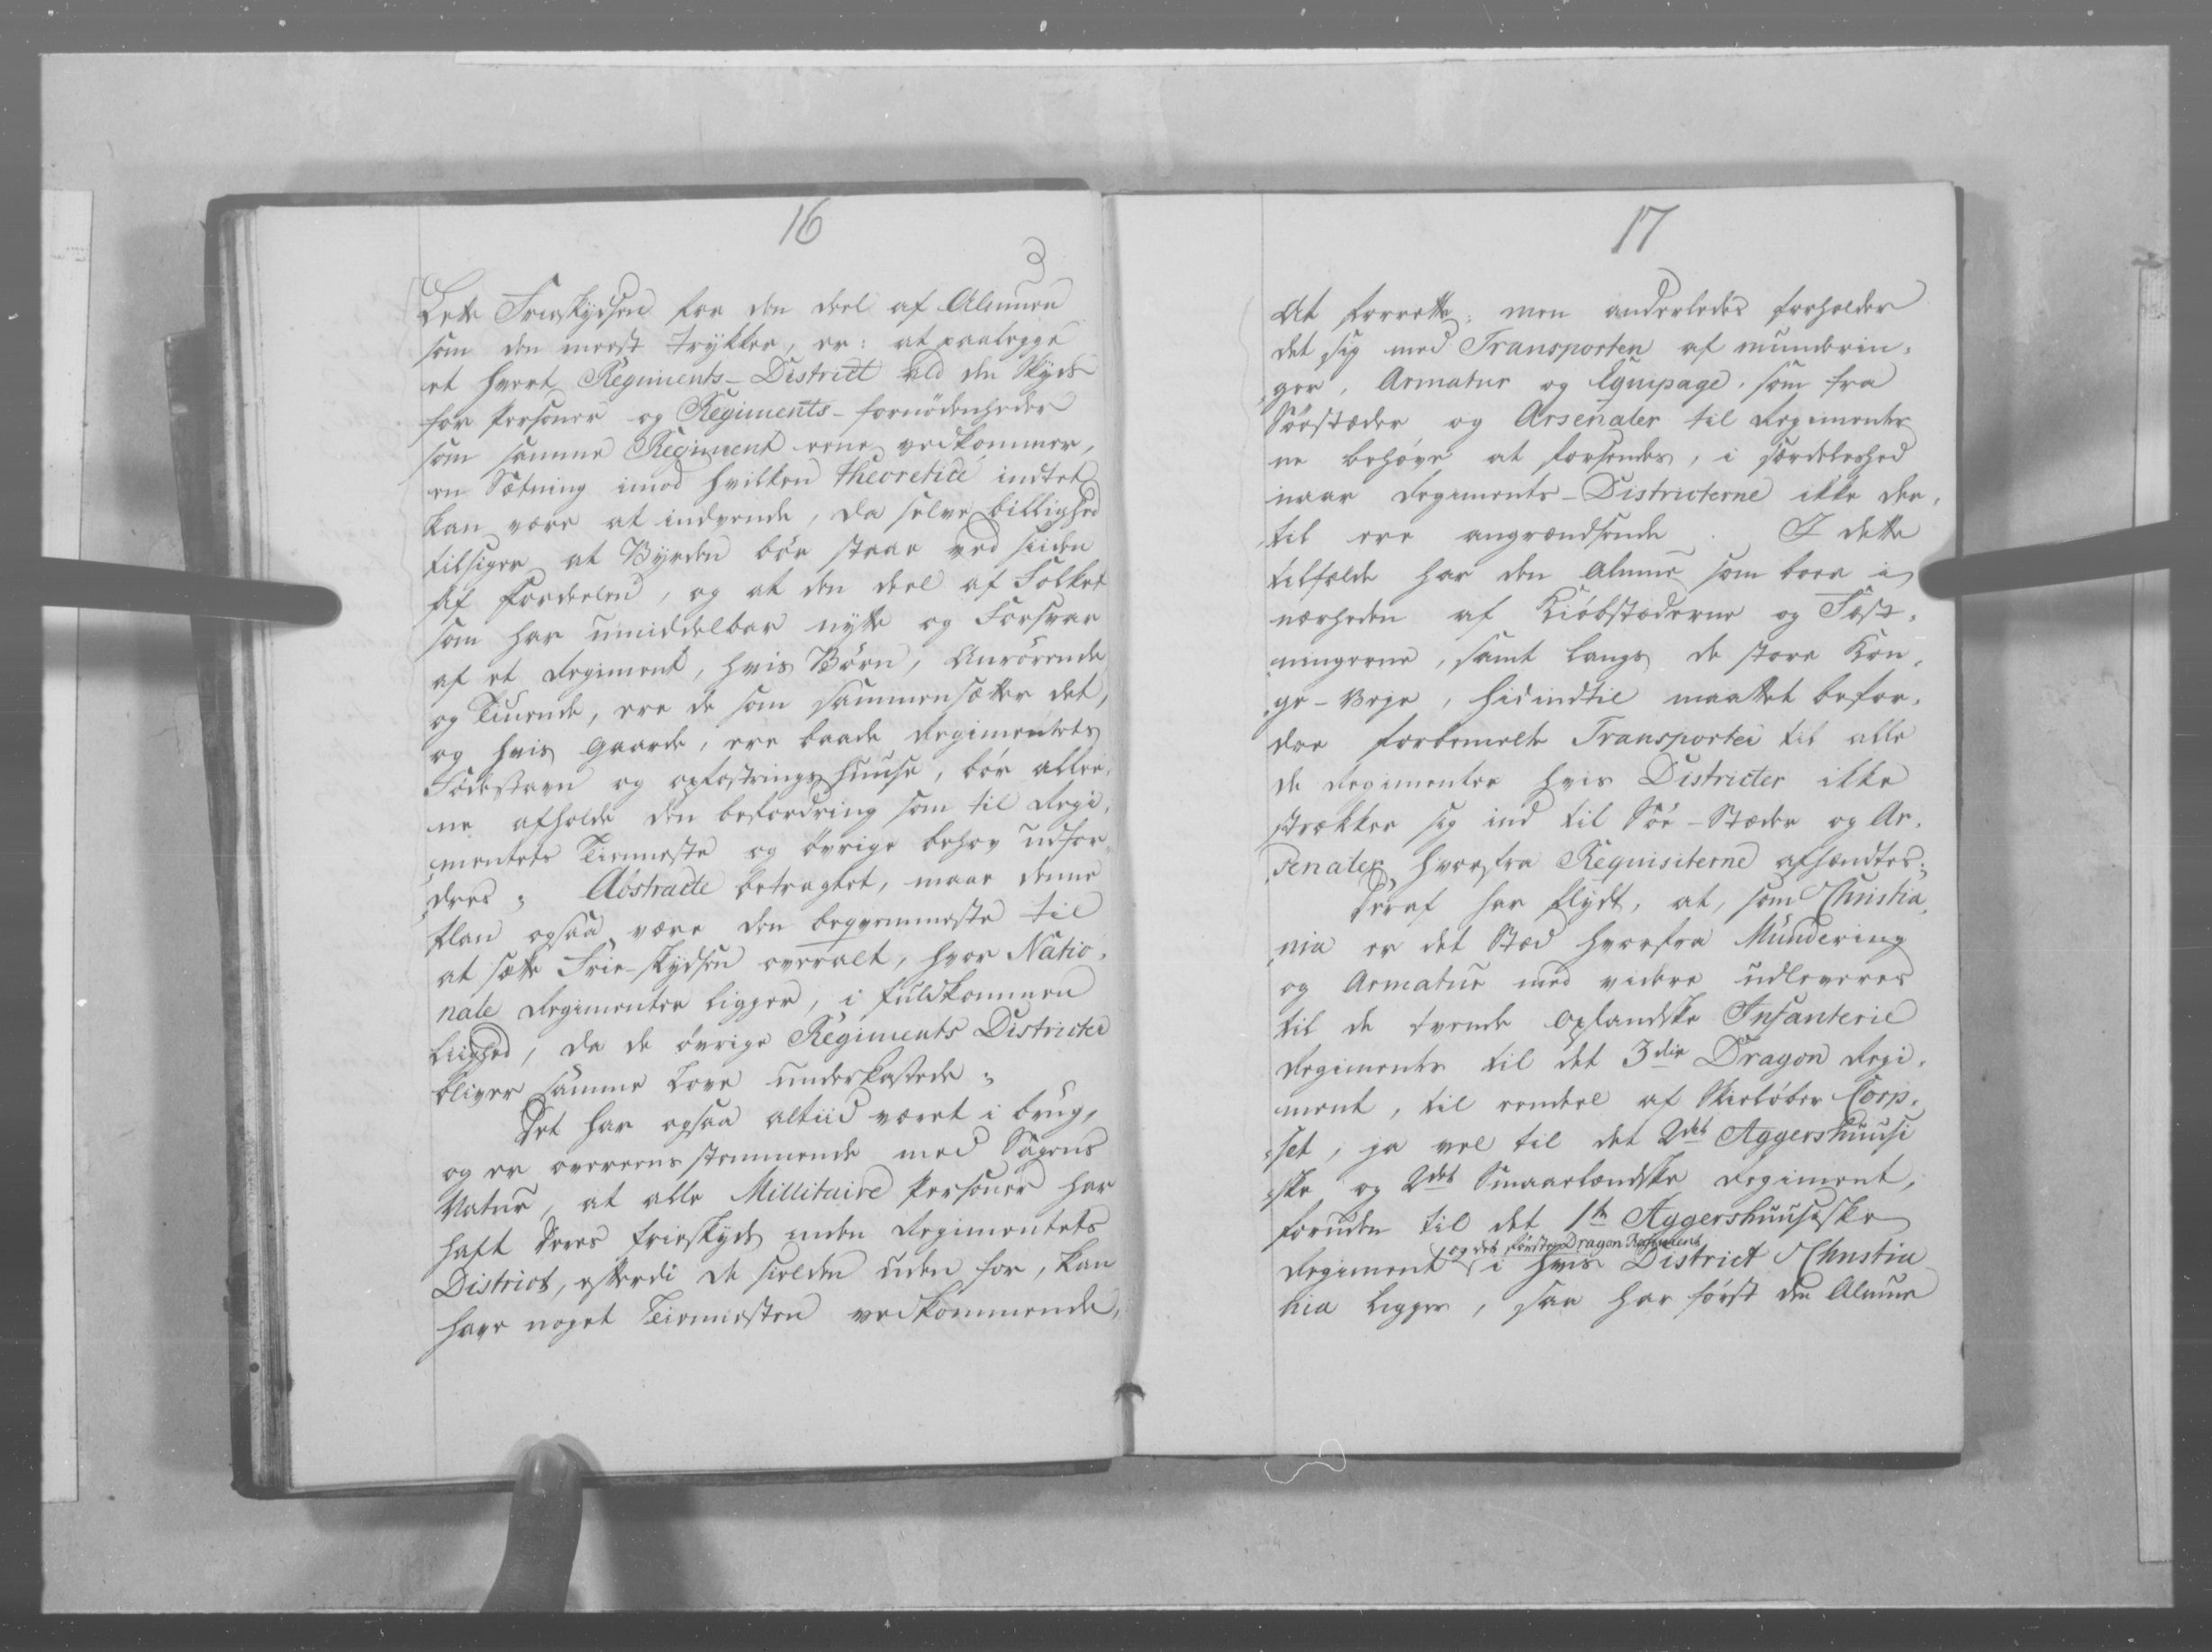 16
3
Lette Frieskydsen for den deel af Almuen
som den meest trykker, er: at paalegge
et hvert Regiments-District all den Skyds
for Personer og Regiments-fornödenheder
som samme Regiment eene vedkommer,
en Sætning imod hvilken theoretice indtet
kan være at indvende, da selve billighed
tilsiger at Byrden bör staae ved siiden
af fordeelen, og at den deel af Folket
som har umiddelbar nytte og Forsvar
af et Regiment, hvis Börn, Anrörende
og Tiuende, ere de som sammensætter det,
og hvis Gaarde, ere baade Regimentets
Födestavn og opfostringshuuse, bör allee,
ne afholde den befordring som til Regi,
mentets Tienneste og övrige behov udfor,
dres; Abstracte betragtet, maae denne
plan ogsaa være den beqvemmeste til
at sætte Frie-skydsen overalt, hvor Natio,
nale Regimenter ligger, i fuldkommen
Liighed, da de övrige Regiments Districter
bliver samme Love underkastede;
Det har ogsaa altiid været i brug,
og er overeensstemmende med Sagens
Natur, at alle Millitaire Personer har
haft deres frieskyds inden Regimentets
District, efterdi de sielden uden for, kan
have noget Tiennesten vedkommende,
17
At forrette; men anderledes forholder
det sig med Transporten af munderin,
ger, Armatur og Equipage, som fra
Söestæder og Arsenaler til Regimenter
ne behöve at forsendes, i særdeleshed
naar Regiments-Districterne ikke der,
til ere angrændsende. I dette
tilfælde har den Almue som boer i
nærheden af Kiöbstæderne og Fæst,
ningerne, samt langs de store Kon,
ge-Veje, hidindtil maattet befor,
dre forbemelte Transporter til alle
de Regimenter hvis Districter ikke
strækker sig ind til Söe-Stæder og Ar,
senaler hvorfra Requisiterne afhændtes;
Deraf har flydt, at, som Christia,
nia er det Stæd hvorfra Mundering
og Armatur med videre udleveres
til de tvende Oplandske Infanterie
Regimenter til det 3die Dragon Regi,
ment, til eendeel af Skielöber Corp,
set, ja vel til det 2det Aggershuusi
ske og 2det Smaalændske Regiment,
foruden til det 1te Aggershuusiske
og det förste Dragon Regiment
Regiment i hvis District Christia
nia ligger, saa har först den Almue